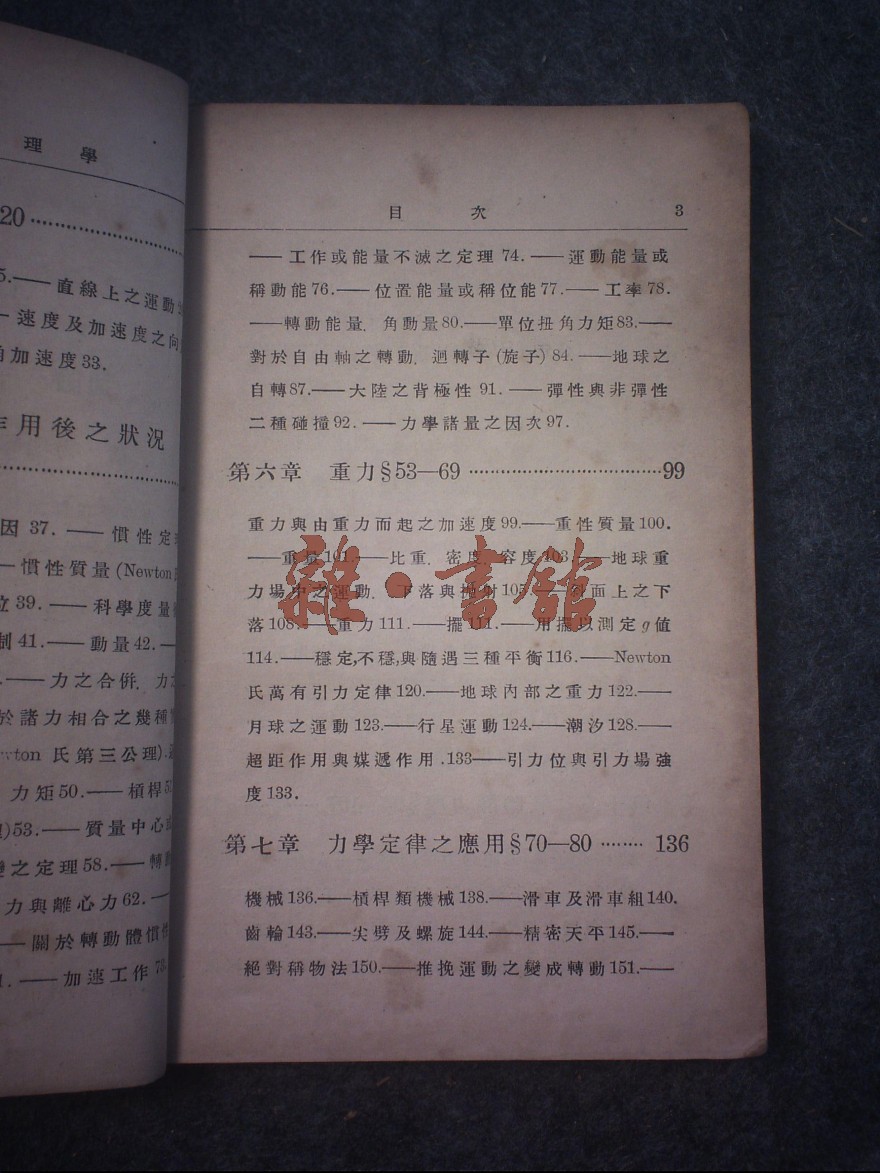 理學
20
5.——直線上之運動
速度及加速度之向
加速度33.
用後之狀況
因 37. —— 慣性定
慣性質量 (Newton
39. —— 科學度量
制 41. —— 動量 42. ——
—— 力之合併. 力
於諸力相合之幾種
ton 氏第三公理).
力矩 50. —— 槓桿
)53. —— 質量中心
之定理 58. —— 轉
力與離心力 62. ——
—— 關於轉動體慣
1. —— 加速工作
目 次 3
—— 工作或能量不滅之定理 74. —— 運動能量或
稱動能 76. —— 位置能量或稱位能 77. —— 工率 78.
—— 轉動能量. 角動量 80. —— 單位扭角力矩 83. ——
對於自由軸之轉動. 迴轉子 (旋子) 84. —— 地球之
自轉 87. —— 大陸之背極性 91. —— 彈性與非彈性
二種碰撞 92. —— 力學諸量之因次 97.
第六章 重力 § 53—69 …………………………… 99
重力與由重力而起之加速度 99. —— 重性質量 100.
—— 重量 101. —— 比重. 密度. 容度 103. —— 地球重
力場中之運動. 下落與拋射 105. —— 斜面上之下
落 108. —— 重力 111. —— 擺 111. —— 用擺以測定 g 值
114. —— 穩定,不穩,與隨遇三種平衡 116. —— Newton
氏萬有引力定律 120. —— 地球內部之重力 122. ——
月球之運動 123. —— 行星運動 124. —— 潮汐 128. ——
超距作用與媒遞作用 . 133 —— 引力位與引力場強
度 133.
第七章 力學定律之應用 § 70—80 ……… 136
機械 136. —— 槓桿類機械 138. —— 滑車及滑車組 140.
齒輪 143. —— 尖劈及螺旋 144. —— 精密天平 145. ——
絕對稱物法 150. —— 推挽運動之變成轉動 151. ——
雜·書館